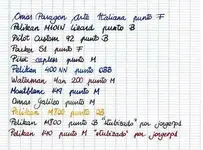 Omas Paragon Arte Italiana punto F
Pelikan M101N Lizard punto B
Pilot Custom 92 punto B
Parker 51 punto F
Pilot capless punto M
Pelikan 400 NN punto OBB
Waterman Man 200 punto M
Montblanc 149 punto M
Omas Galileo punto M
Pelikan M700 punto OB
Pelikan M800 punto B "stubizado" por jorgeupd
Pelikan 140 punto M "stubizado" por jorgeupd